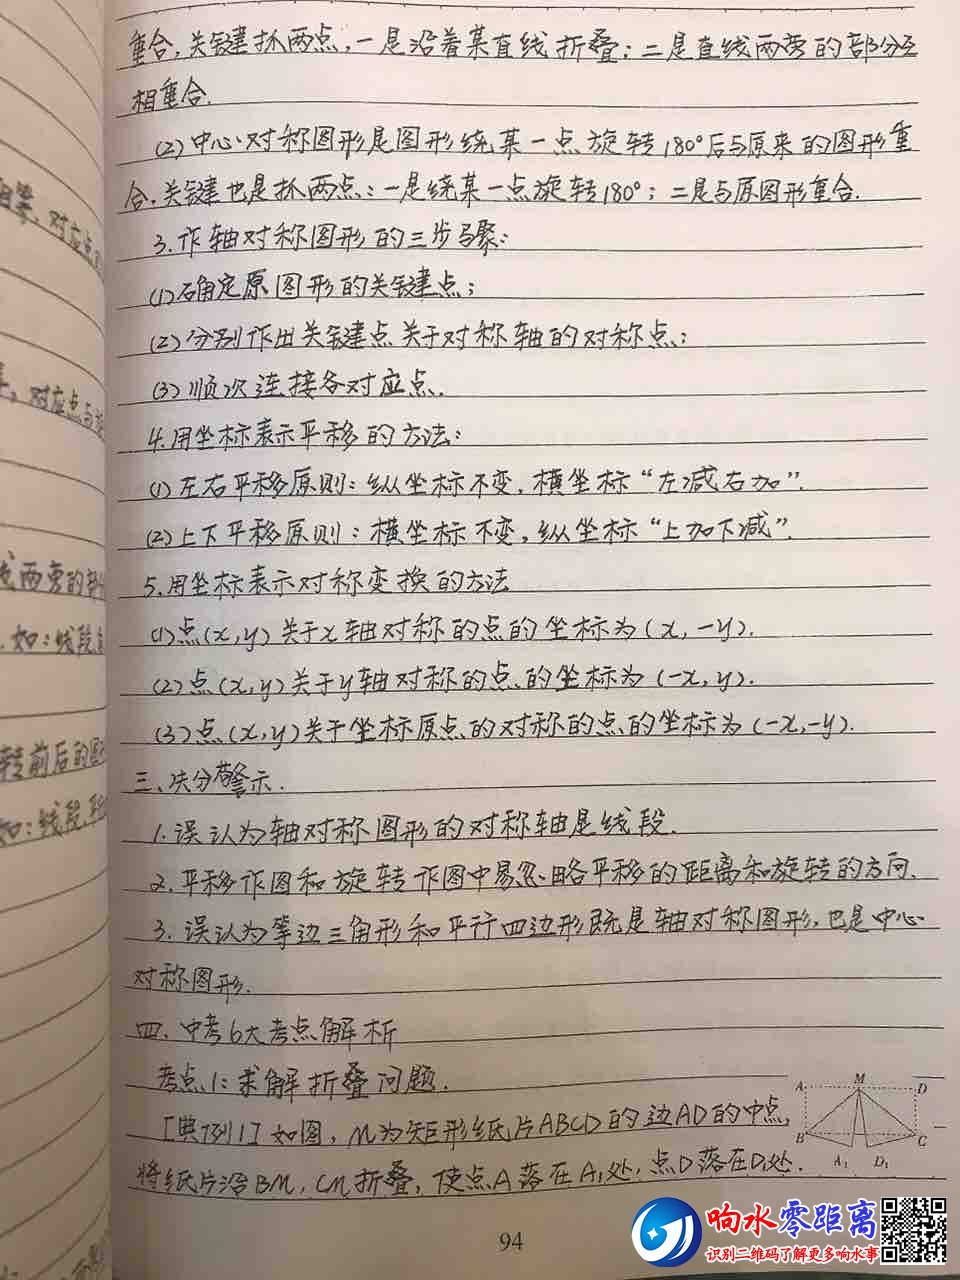 重合,关键抓两点,一是沿着某直线折叠;二是直线两旁的部分互
相重合.
(2)中心对称图形是图形绕某一点旋转180°后与原来的图形重
合,关键也是抓两点:一是绕某一点旋转180°;二是与原图形重合.
3.作轴对称图形的三步骤:
(1)确定原图形的关键点;
(2)分别作出关键点关于对称轴的对称点;
(3)顺次连接各对应点.
4.用坐标表示平移的方法:
(1)左右平移原则:纵坐标不变,横坐标“左减右加”.
(2)上下平移原则:横坐标不变,纵坐标“上加下减”.
5.用坐标表示对称变换的方法
(1)点(x,y)关于x轴对称的点的坐标为(x,-y).
(2)点(x,y)关于y轴对称的点的坐标为(-x,y).
(3)点(x,y)关于坐标原点的对称的点的坐标为(-x,-y).
三、失分警示.
1.误认为轴对称图形的对称轴是线段.
2.平移作图和旋转作图中易忽略平移的距离和旋转的方向.
3.误认为等边三角形和平行四边形既是轴对称图形,也是中心
对称图形.
四、中考6大考点解析
考点1:求解折叠问题.
[典例1]如图,M为矩形纸片ABCD的边AD的中点,
将纸片沿BM,CM折叠,使点A落在A₁处,点D落在D₁处.
A M D
B C
A₁ D₁
94
相等,对应点
对应点与
两旁的部分
如:线段
转前后的图
如:线段
响水零距离
识别二维码了解更多响水事